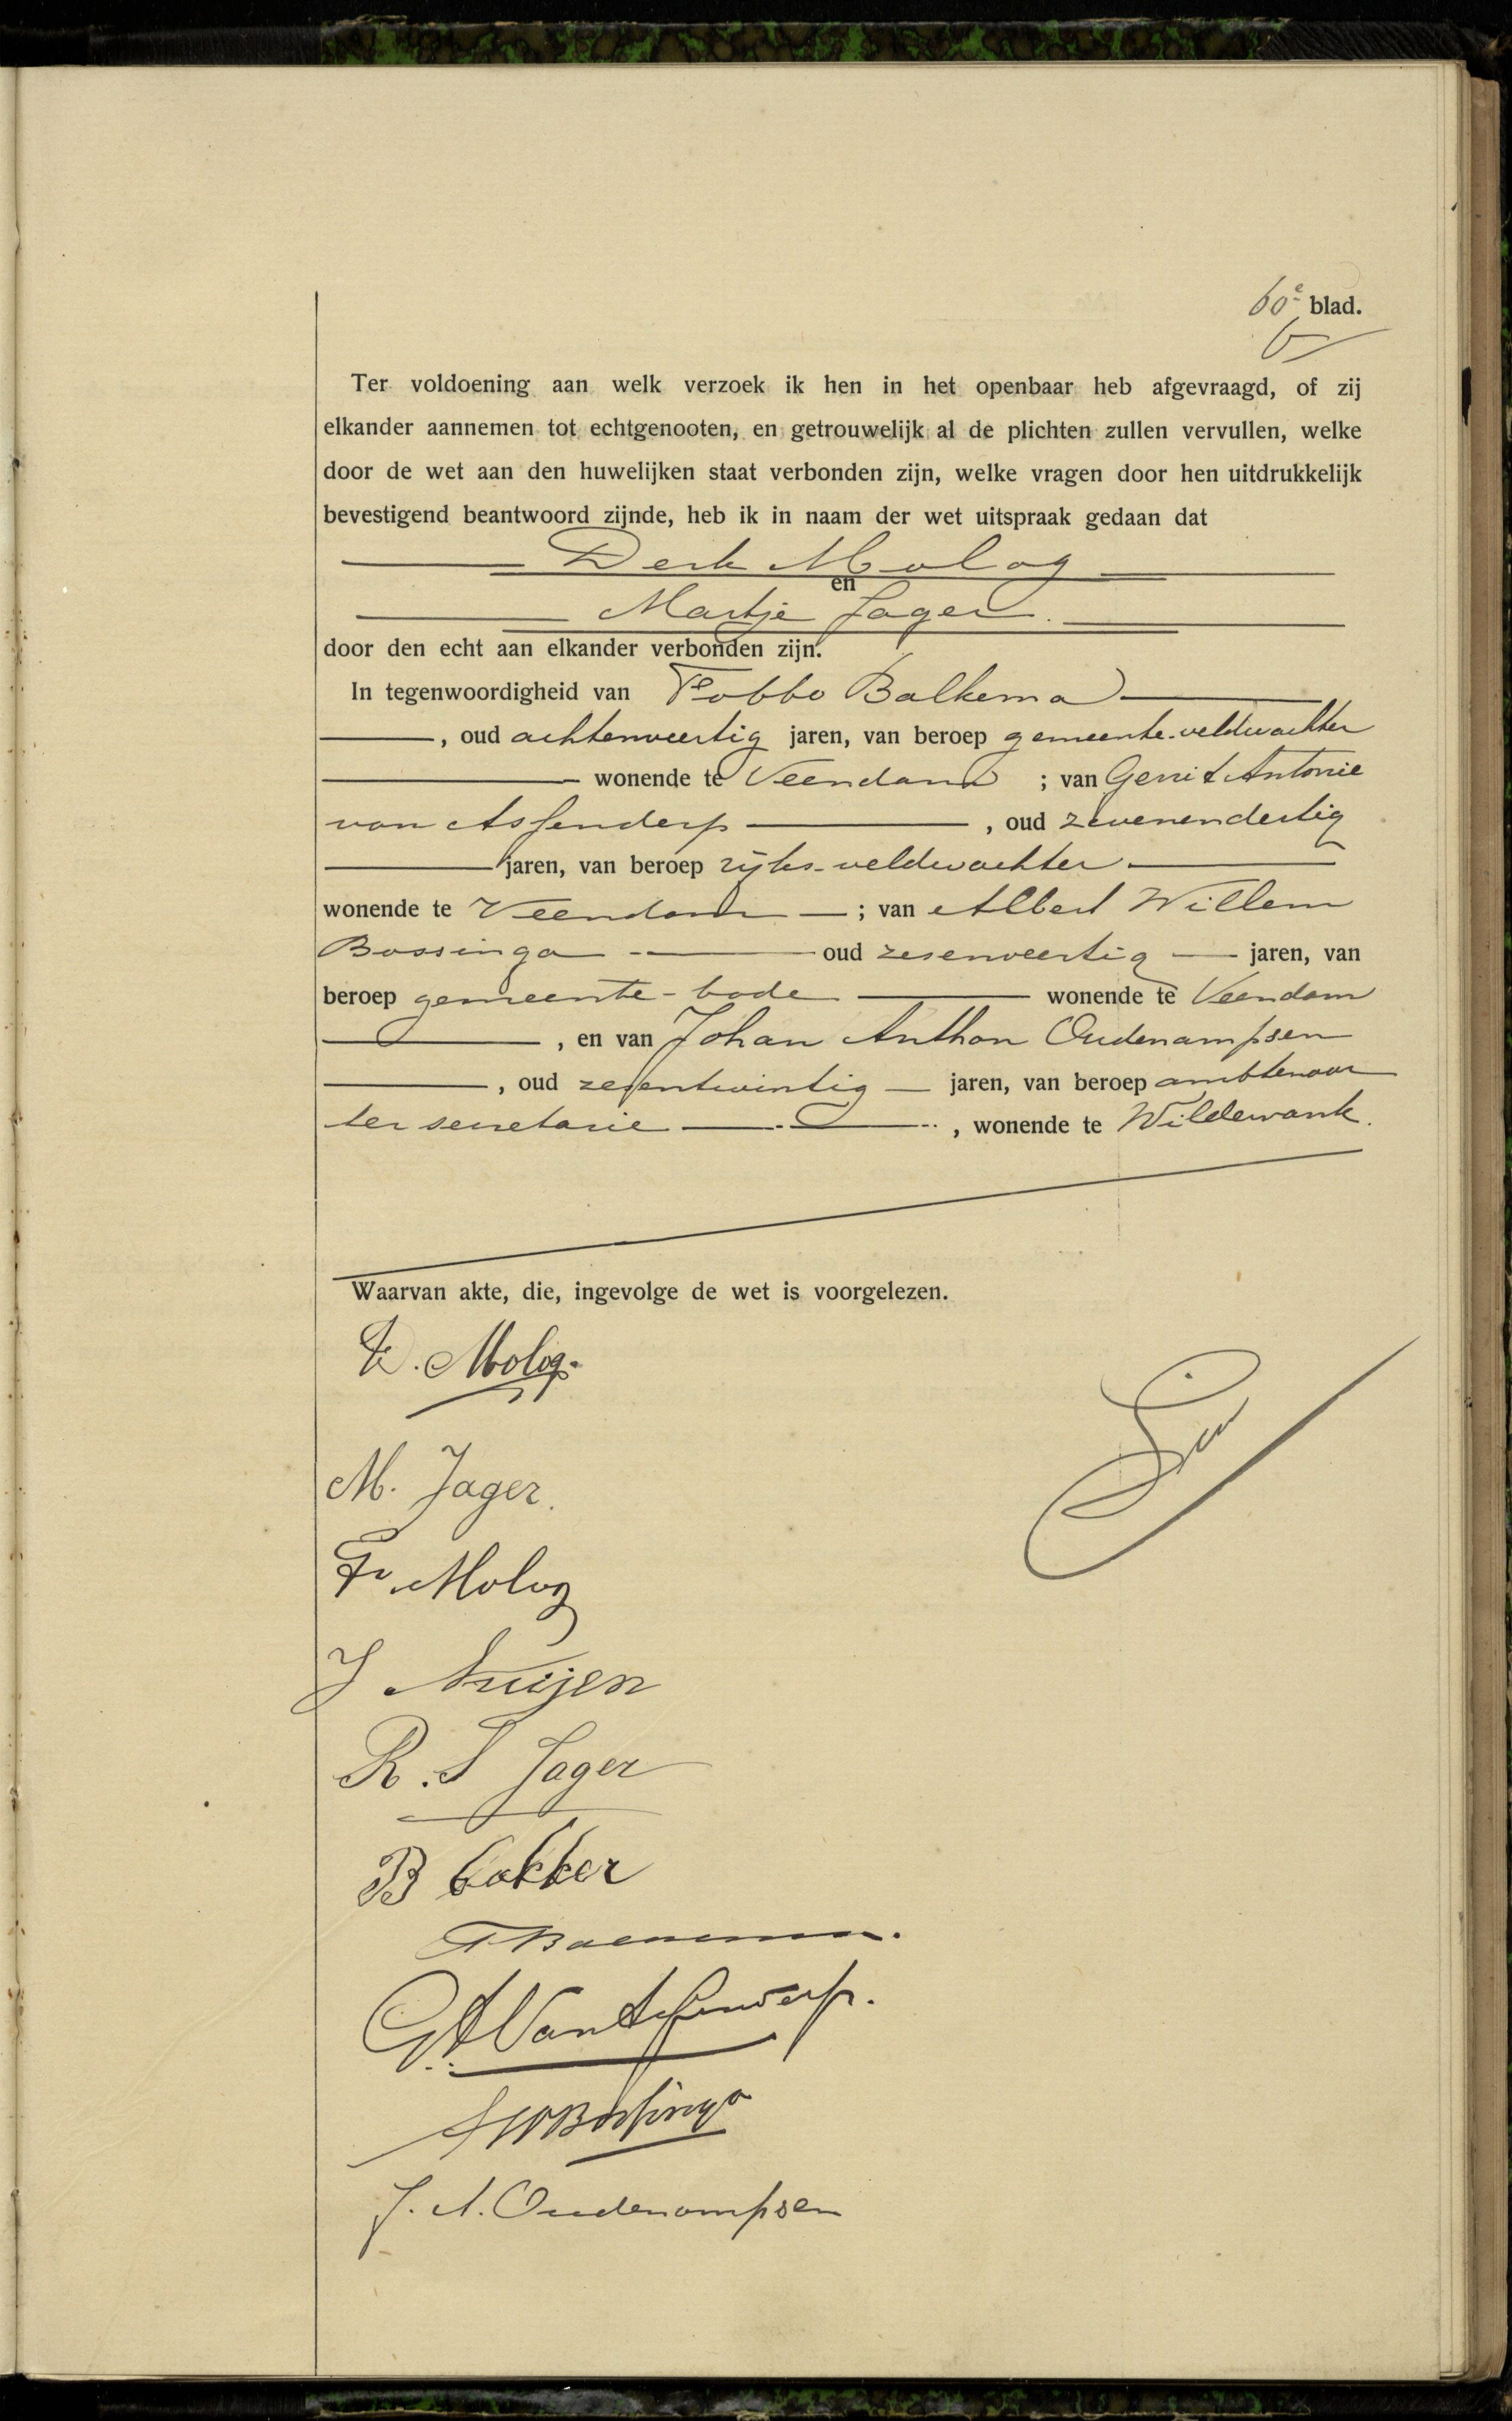 60e blad.
Ter voldoening aan welk verzoek ik hen in het openbaar heb afgevraagd, of zij
elkander aannemen tot echtgenooten, en getrouwelijk al de plichten zullen vervullen, welke
door de wet aan den huwelijken staat verbonden zijn, welke vragen door hen uitdrukkelijk
bevestigend beantwoord zijnde, heb ik in naam der wet uitspraak gedaan dat
Derk Molog
en
Martje Jager.
door den echt aan elkander verbonden zijn.
In tegenwoordigheid van Fobbo Balkema
, oud achtenveertig jaren, van beroep gemeente-veldwachter
wonende te Veendam ; van Gerrit Antonie
van Assenderp , oud zevenendertig
jaren, van beroep rijks-veldwachter
wonende te Veendam ; van Albert Willem
Bossinga oud zesenveertig jaren, van
beroep gemeente-bode wonende te Veendam
, en van Johan Anthon Oudenampsen
, oud zesentwintig jaren, van beroep ambtenaar
ter secretarie , wonende te Wildervank.
Waarvan akte, die, ingevolge de wet is voorgelezen.
D. Molog.
M. Jager.
F. Molog
J Nuijen
R. S Jager
B bakker
G A Van Assenderp.
A W Bossinga
J. A. Oudenampsen